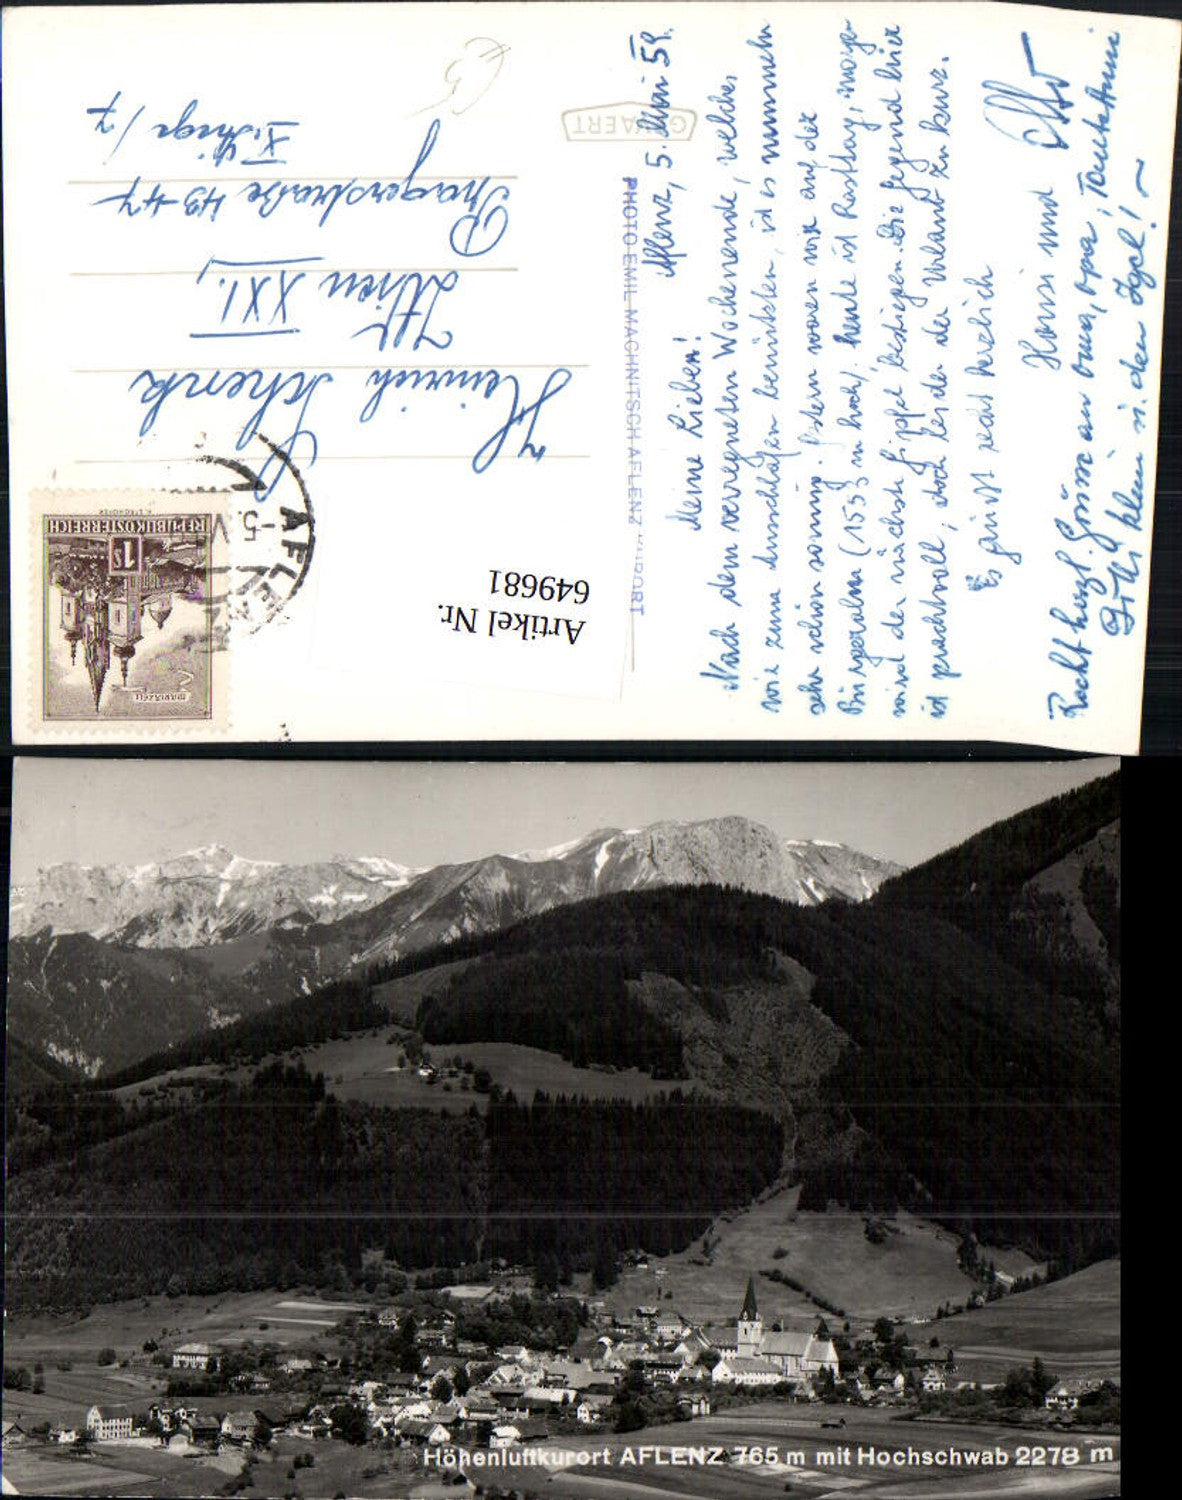 Aflenz, 5. Mai 59.
Meine Lieben!
Nach dem verregneten Wochenende, welches
wir zum Ausschlafen benützten, ist es nunmehr
sehr schön sonnig. Gestern waren wir auf der
Bürgeralm (1553 m hoch), heute ist Rasttag, morgen
wird der nächste Gipfel bestiegen. Die Gegend hier
ist prachtvoll, doch leider der Urlaub zu kurz.
Es grüsst recht herzlich
Hansi und Otto
Recht herzl. Grüsse an Oma, Opa, Tante Anni
klein u. den Igel!
PHOTO EMIL MACHNITSCH AFLENZ KURORT
GEVAERT
€3
Heinrich Schenk
Wien XXI.,
Pragerstraße 43-47
X. Stiege / 7
REPUBLIK ÖSTERREICH
1 S
MARIAZELL
AFLENZ
-5. V
Artikel Nr.
649681
Höhenluftkurort AFLENZ 765 m mit Hochschwab 2278 m